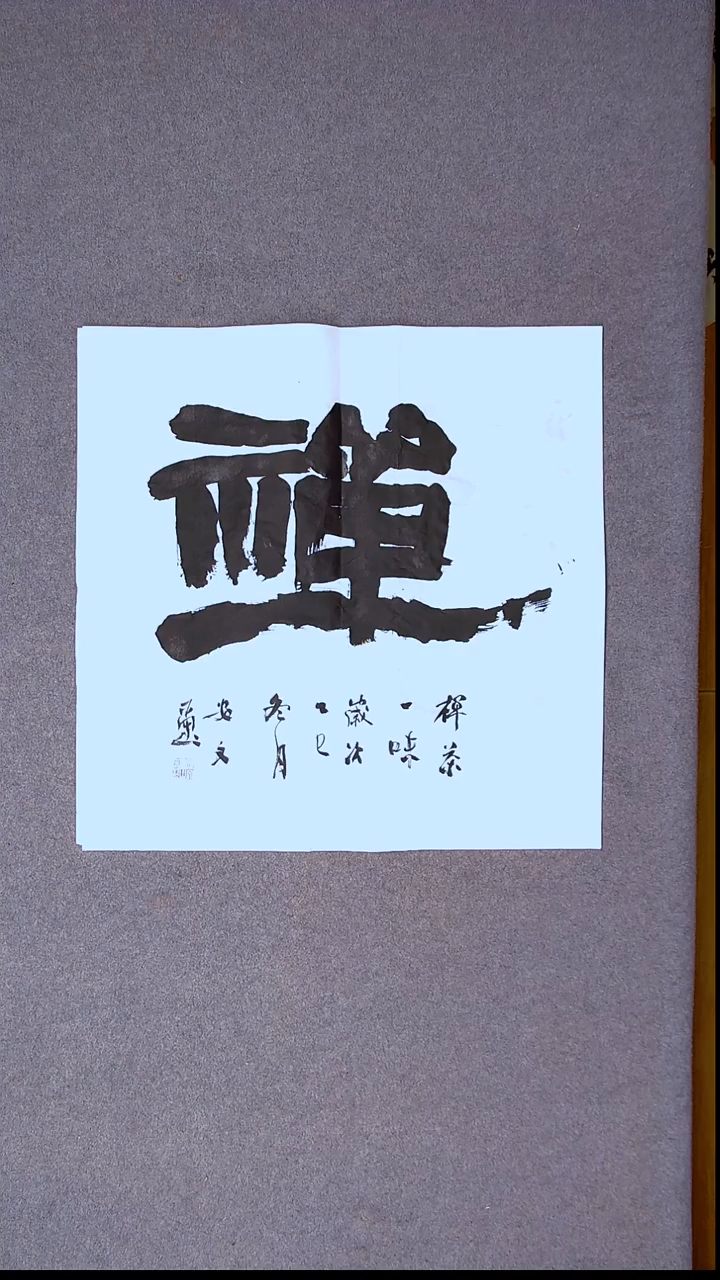 禪
禪茶
一味
歲次
乙巳
冬月
安文